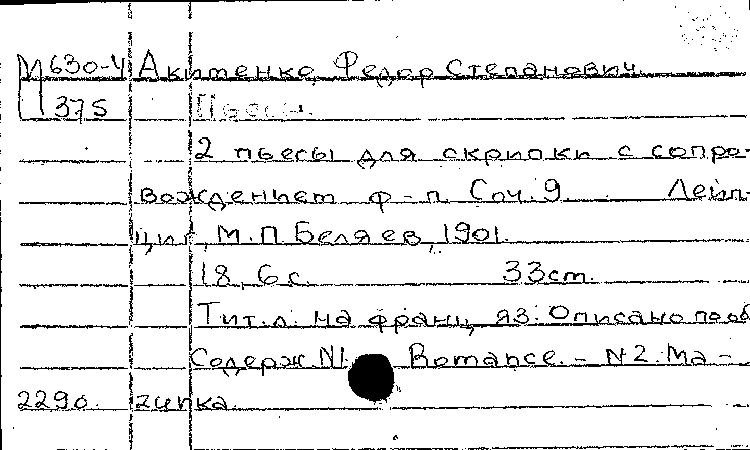 М630-4 Акименко, Федор Степанович.
375 Пьесы.
2 пьесы для скрипки с сопро-
вождением ф-п. Соч. 9. Лейп-
циг, М.П. Беляев, 1901.
18, 6 с. 33 cm.
Тит. л. на франц. яз. Описано по об
Содерж. N1. Romance. - N2. Ma-
2290. zurka.